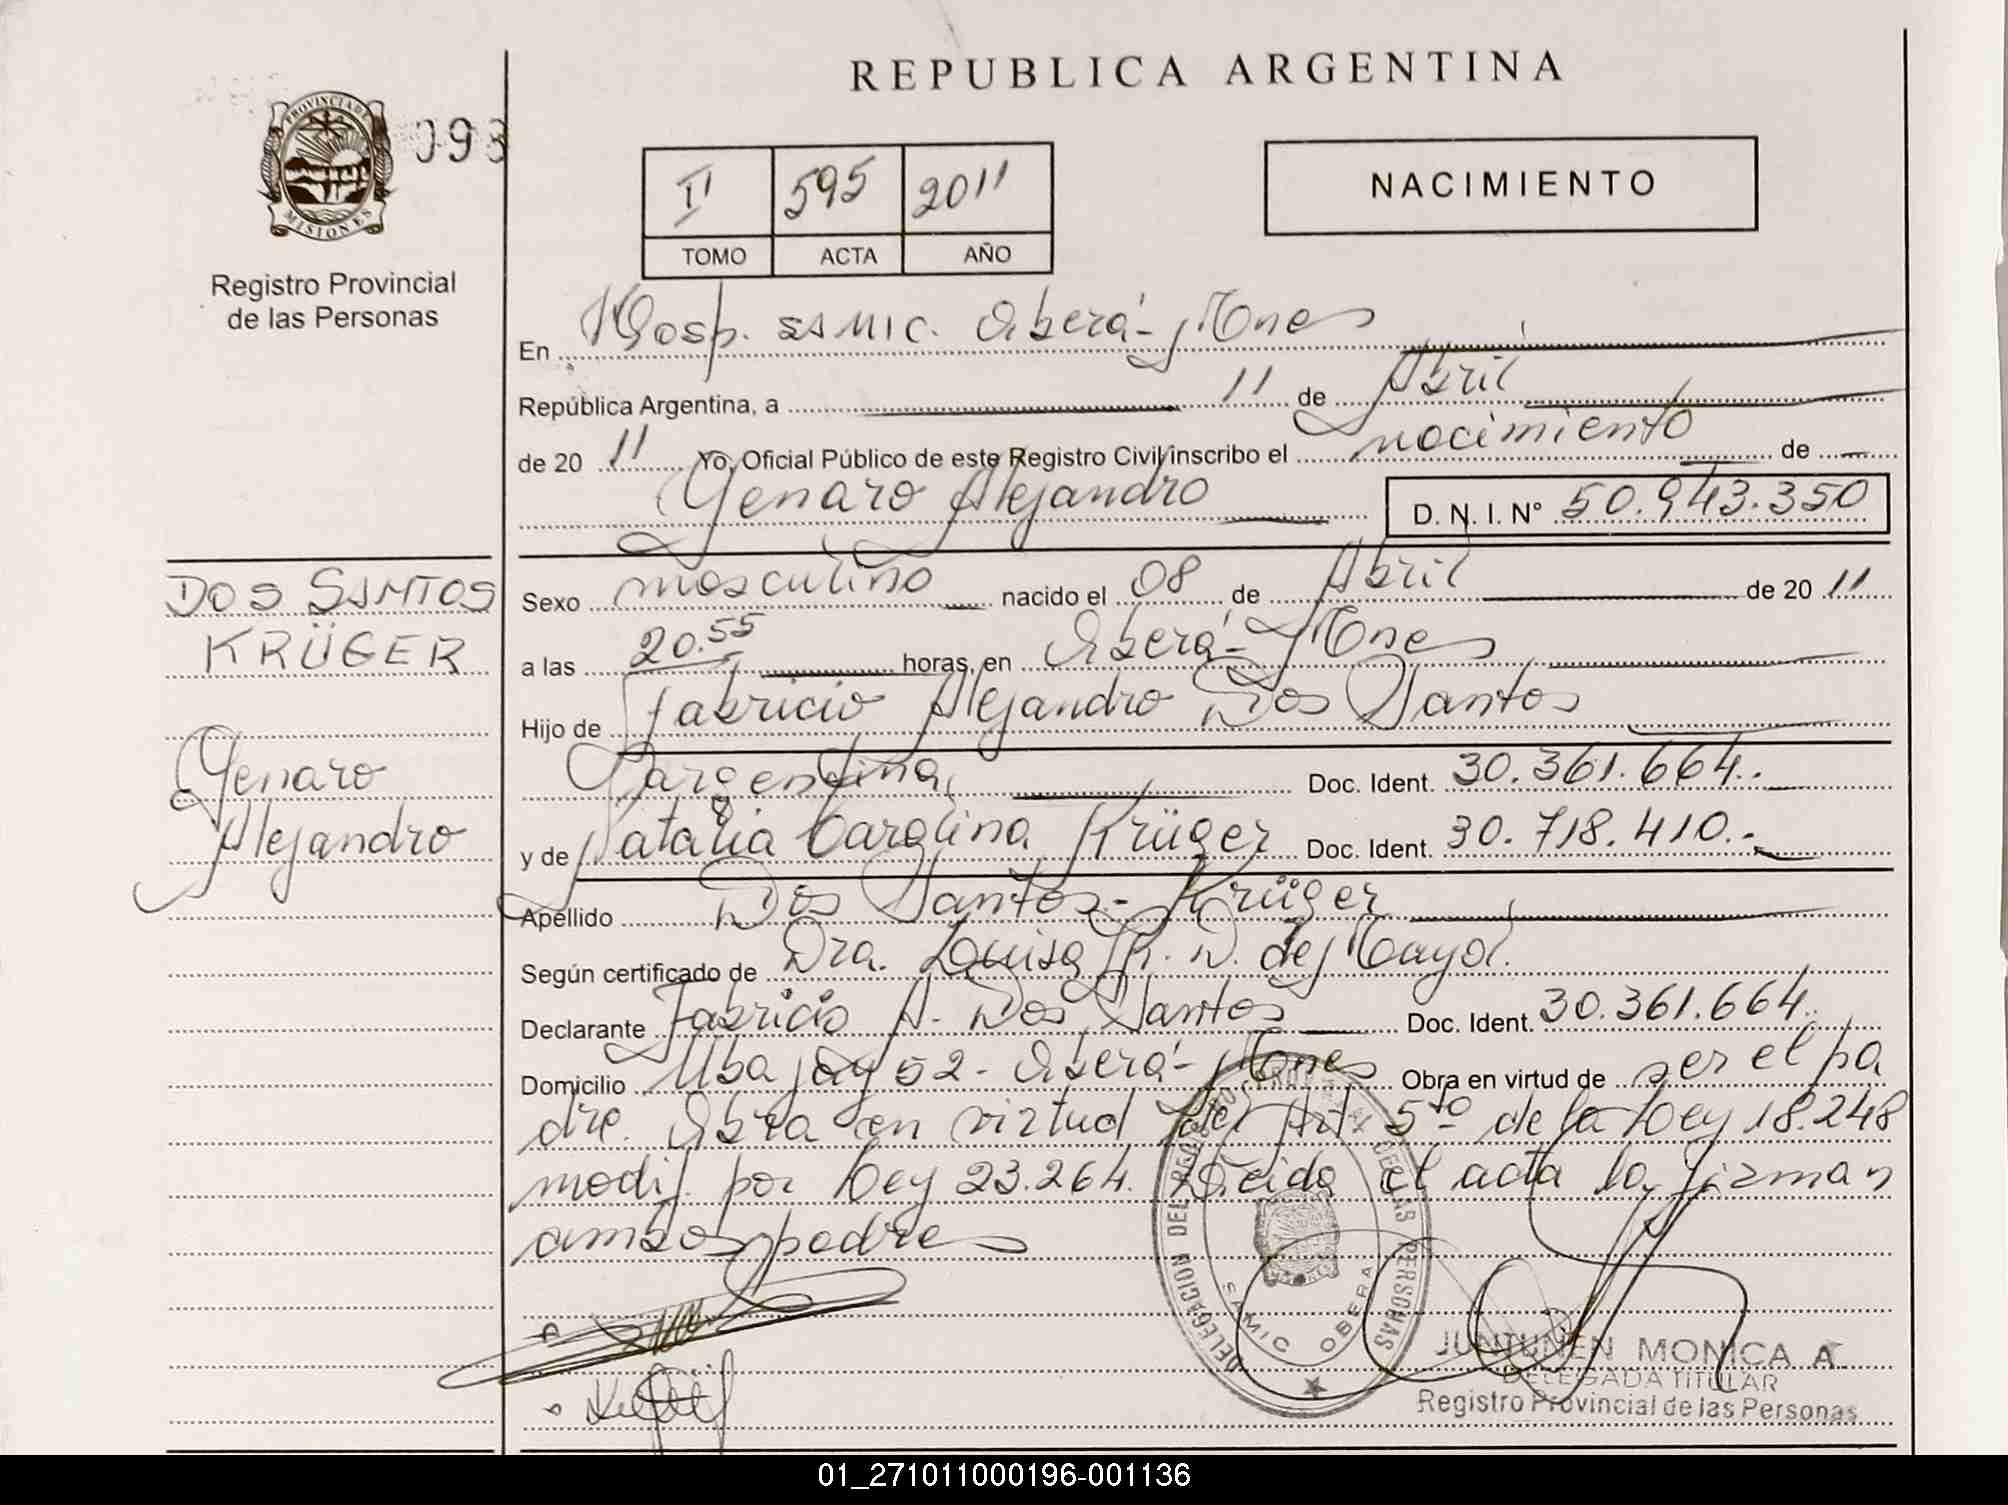 REPUBLICA ARGENTINA
PROVINCIA DE
MISIONES
093
Registro Provincial
de las Personas
II 595 2011
TOMO ACTA AÑO
NACIMIENTO
En Hosp. SAMIC. Oberá-Mnes
República Argentina, a 11 de Abril
de 20 11 Yo, Oficial Público de este Registro Civil inscribo el nacimiento de
Genaro Alejandro D. N. I. N° 50.943.350
DOS SANTOS
KRÜGER
Genaro
Alejandro
Sexo masculino nacido el 08 de Abril de 20 11
a las 20.55 horas, en Oberá-Mnes
Hijo de Fabricio Alejandro Dos Santos
argentina, Doc. Ident. 30.361.664.-
y de Natalia Carolina Krüger Doc. Ident. 30.718.410.-
Apellido Dos Santos-Krüger
Según certificado de Dra. Louisa R. D. de Mayol.
Declarante Fabricio A. Dos Santos Doc. Ident. 30.361.664.
Domicilio Ubajay 52- Oberá-Mnes Obra en virtud de ser el pa
dre. Obra en virtud del Art 5to de la Ley 18.248
modif. por Ley 23.264. Leida el acta la firman
ambos padres
DELEGACION DEL REGISTRO PROVINCIAL DE LAS PERSONAS
SAMIC OBERA
JUNTUNEN MONICA A.
DELEGADA TITULAR
Registro Provincial de las Personas
01_271011000196-001136